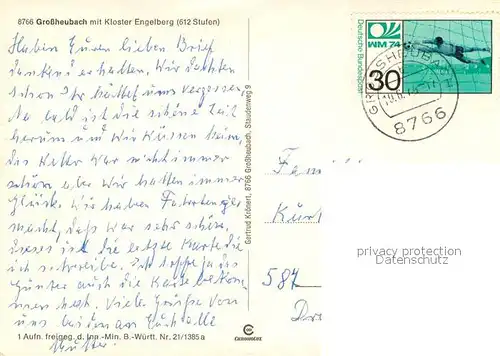 8766 Großheubach mit Kloster Engelberg (612 Stufen)
Haben Euren lieben Brief
dankend erhalten. Wir dachten
schon Ihr hättet uns vergessen
Na bald ist die schöne Zeit
herum und wir müssen heim,
das Wetter war nicht immer
schön aber wir hatten immer
Glück. Wir haben Fahrten ge
macht, das war sehr schön.
dieses ist die letzte Karte die
ich schreibe. Ich hoffe das
Günter auch die Karte bekom
men hat. Viele Grüße von
uns beiden an Euch alle
Mutter.
1 Aufn. freigeg. d. Inn.-Min. B.-Württ. Nr. 21/1385 a
Gertrud Krönert, 8766 Großheubach, Staudenweg 9
CEKOMOTIV
Deutsche Bundespost
WM 74
30
GROSSHEUBACH
8766
Fami
Kurt
587
privacy protection
Datenschutz